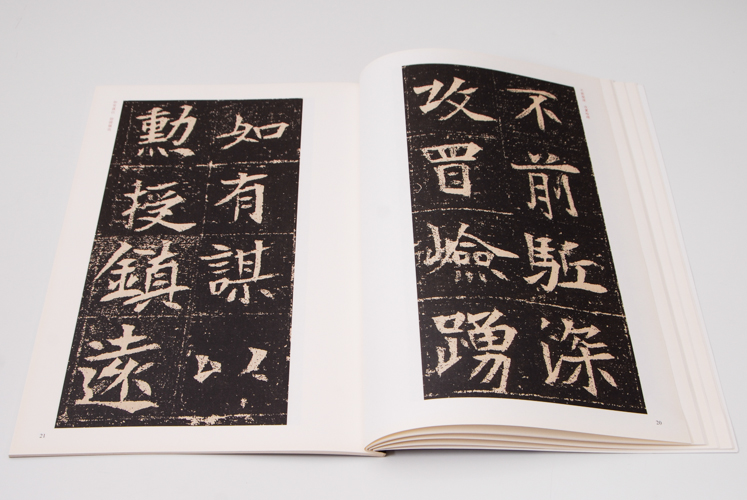 不前駈深
攻冒嶮踴
20
如有謀以
勲授鎮遠
21